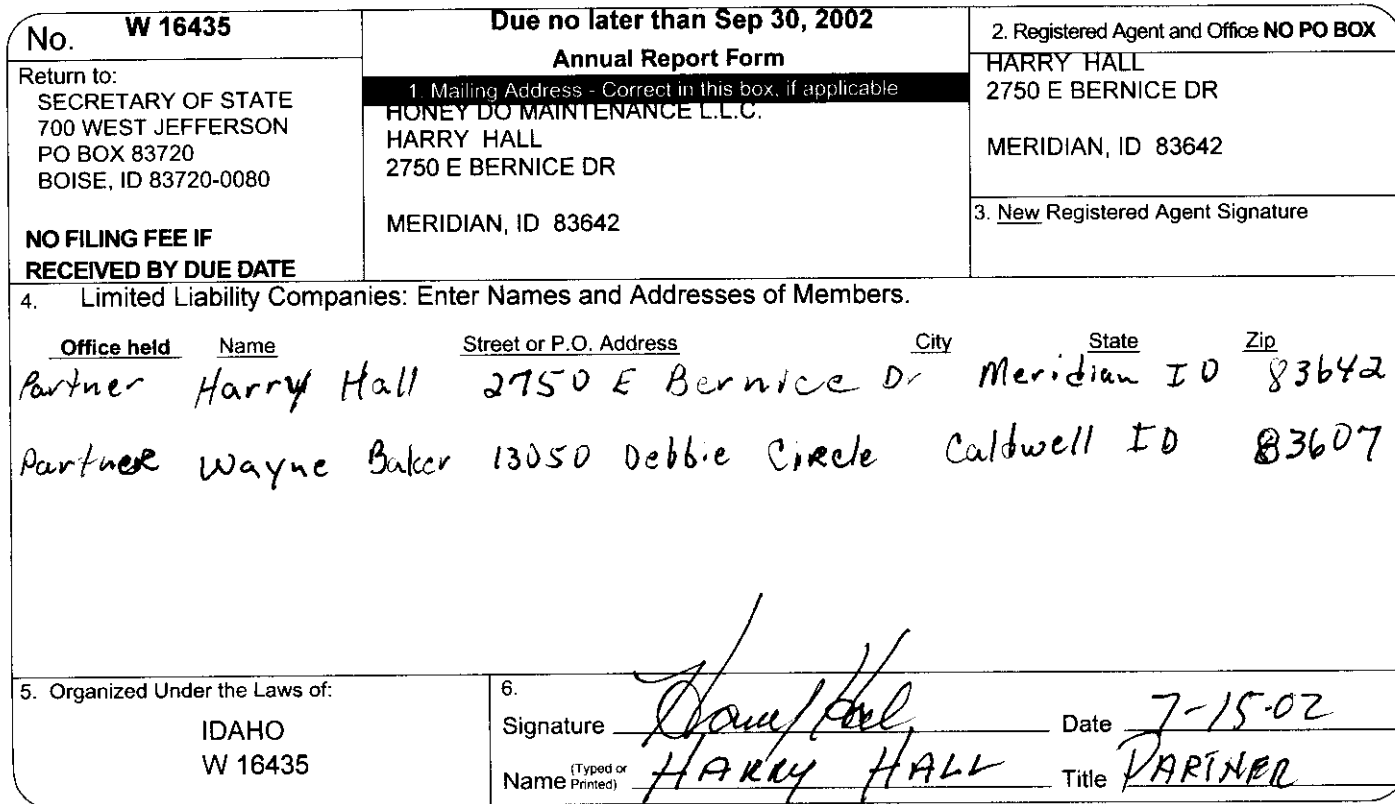 No. W 16435
Return to:
SECRETARY OF STATE
700 WEST JEFFERSON
PO BOX 83720
BOISE, ID 83720-0080
NO FILING FEE IF
RECEIVED BY DUE DATE
Due no later than Sep 30, 2002
Annual Report Form
1. Mailing Address - Correct in this box, if applicable
HONEY DO MAINTENANCE L.L.C.
HARRY HALL
2750 E BERNICE DR
MERIDIAN, ID 83642
2. Registered Agent and Office NO PO BOX
HARRY HALL
2750 E BERNICE DR
MERIDIAN, ID 83642
3. New Registered Agent Signature
4. Limited Liability Companies: Enter Names and Addresses of Members.
Office held Name Street or P.O. Address City State Zip
Partner Harry Hall 2750 E Bernice Dr Meridian ID 83642
Partner Wayne Baker 13050 Debbie Circle Caldwell ID 83607
5. Organized Under the Laws of:
IDAHO
W 16435
6.
Signature Harry Hall Date 7-15-02
Name (Typed or Printed) HARRY HALL Title PARTNER